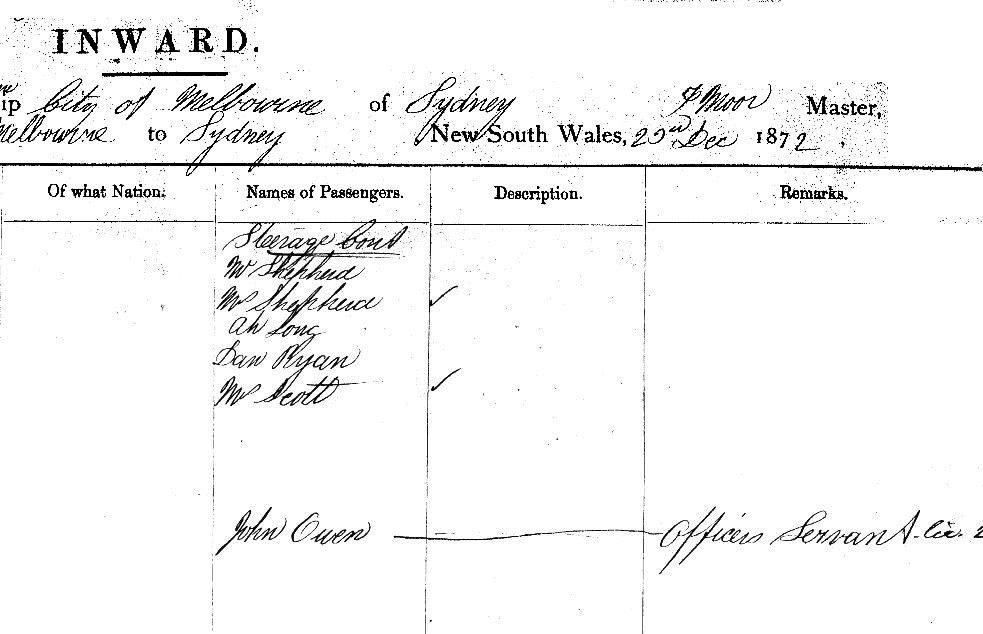 INWARD.
ip City of Melbourne of Sydney Moor Master,
Melbourne to Sydney New South Wales, 23rd Dec 1872.
Of what Nation. Names of Passengers. Description. Remarks.
Steerage Cont
Mr Shepherd
Mrs Shepherd ✓
Ah Long
Dan Ryan
Mrs Scott ✓
John Owen — Officers Servant